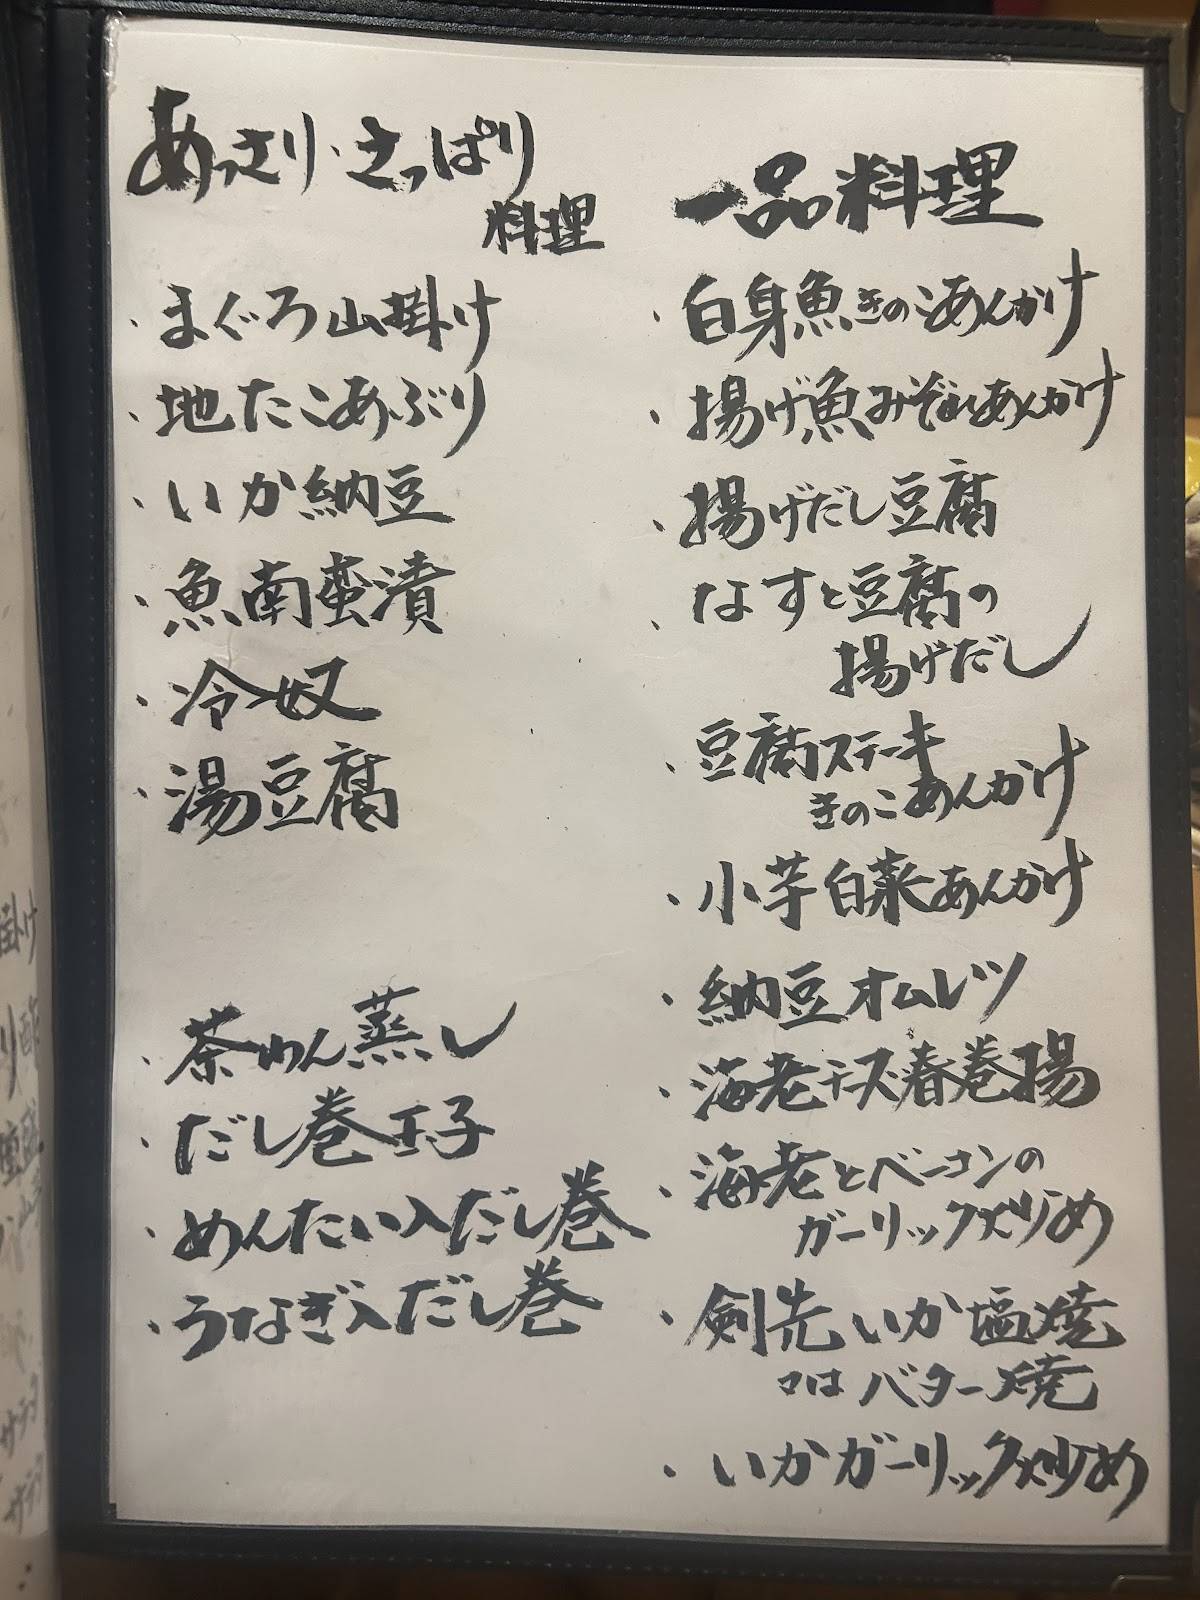 あっさり・さっぱり
料理
・まぐろ山掛け
・地たこあぶり
・いか納豆
・魚南蛮漬
・冷奴
・湯豆腐
・茶わん蒸し
・だし巻玉子
・めんたい入だし巻
・うなぎ入だし巻
一品料理
・白身魚きのこあんかけ
・揚げ魚みぞれあんかけ
・揚げだし豆腐
・なすと豆腐の
揚げだし
・豆腐ステーキ
きのこあんかけ
・小芋白菜あんかけ
・納豆オムレツ
・海老チーズ春巻揚
・海老とベーコンの
ガーリック炒め
・剣先いか塩焼
又はバター焼
・いかガーリック炒め
掛け
サラダ